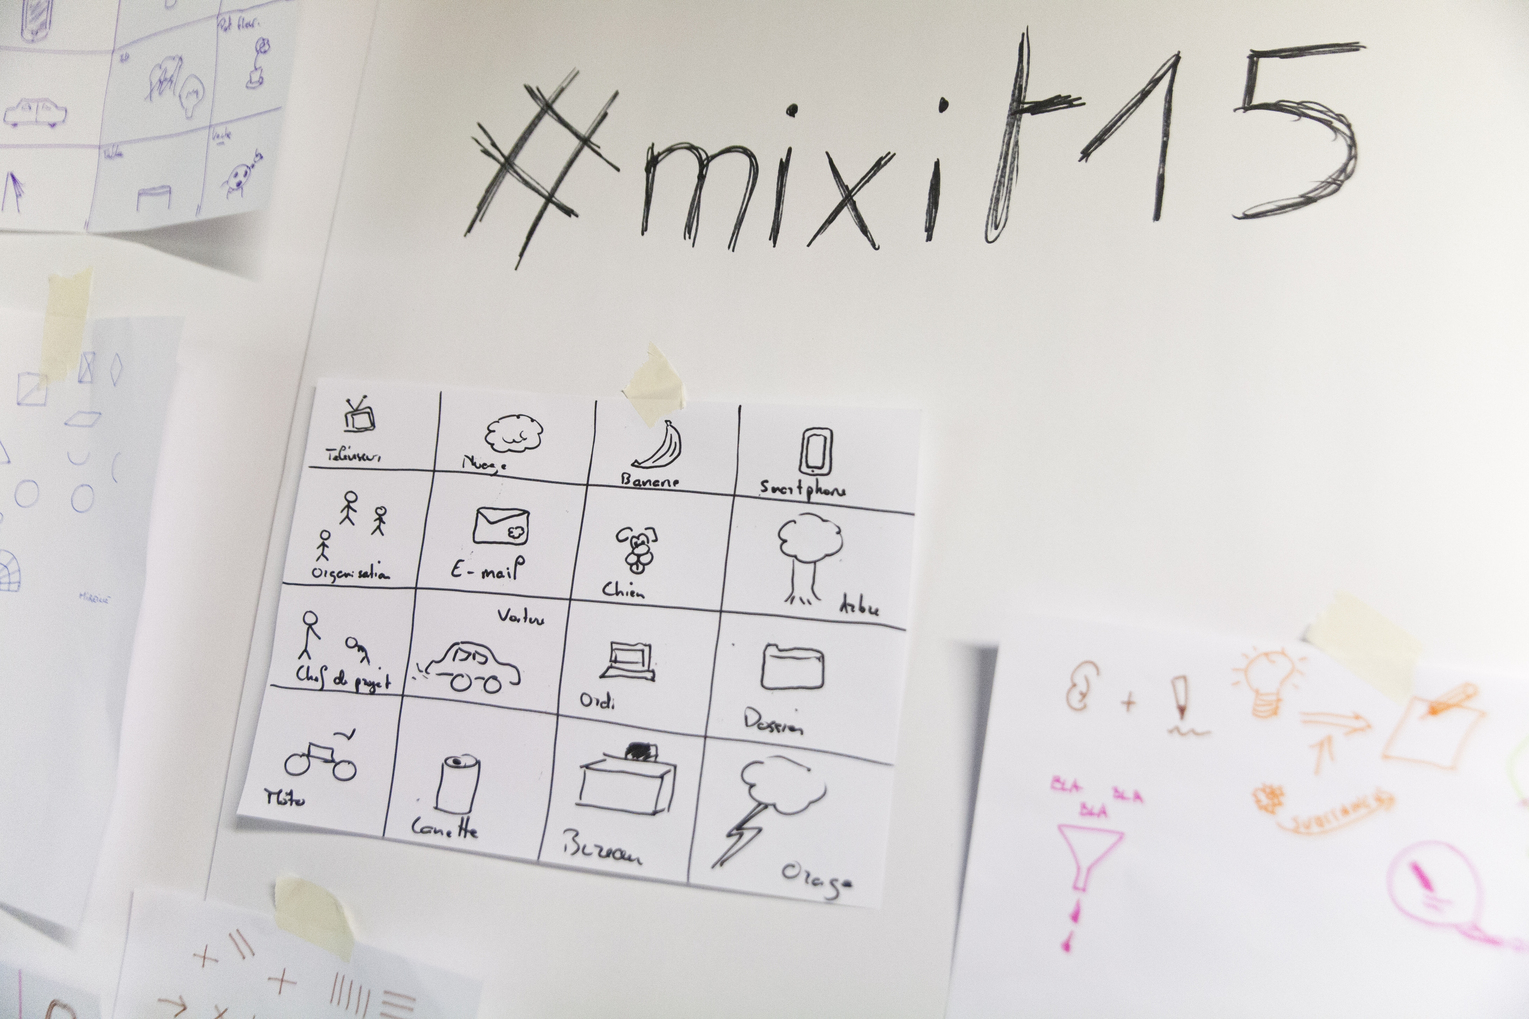 #mixit15
Pot fleur
Téléviseur
Nuage
Banane
Smartphone
Organisation
E-mail
Chien
Arbre
Chef de projet
Voiture
Ordi
Dossier
Moto
Canette
Bureau
Orage
BLA
BLA
BLA